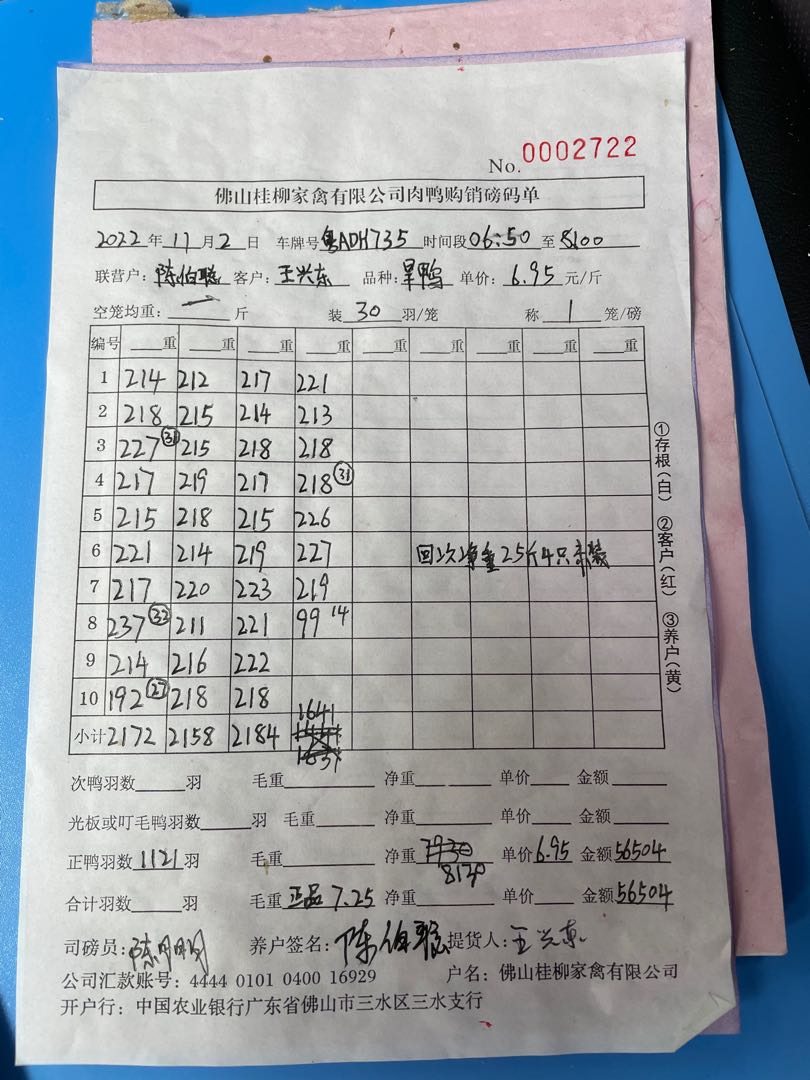 No. 0002722
佛山桂柳家禽有限公司肉鸭购销磅码单
2022年11月2日 车牌号粤ADH735 时间段06:50至8:00
联营户:陈伯聪 客户:王兴东 品种:旱鸭 单价:6.95元/斤
空笼均重:一斤 装30羽/笼 称1笼/磅
编号 重 重 重 重 重 重 重 重 重
1 214 212 217 221
2 218 215 214 213
3 227(31) 215 218 218
4 217 219 217 218(31)
5 215 218 215 226
6 221 214 219 227 回次净重25斤4只
7 217 220 223 219
8 237(32) 211 221 99 14
9 214 216 222
10 192(27) 218 218
小计 2172 2158 2184 1641
①存根(白) ②客户(红) ③养户(黄)
次鸭羽数 羽 毛重 净重 单价 金额
光板或叮毛鸭羽数 羽 毛重 净重 单价 金额
正鸭羽数1121羽 毛重 净重7930 8130 单价6.95 金额56504
合计羽数 羽 毛重正品7.25 净重 单价 金额56504
司磅员:陈明明 养户签名:陈伯聪 提货人:王兴东
公司汇款账号:4444 0101 0400 16929 户名:佛山桂柳家禽有限公司
开户行:中国农业银行广东省佛山市三水区三水支行